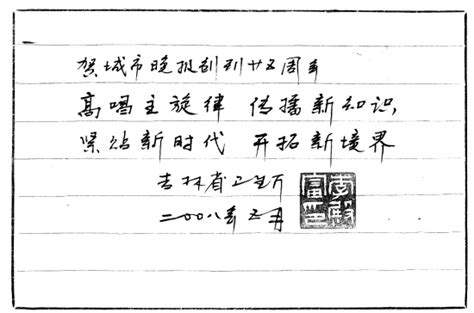 贺城市晚报创刊廿五周年
高唱主旋律 传播新知识,
紧贴新时代 开拓新境界
吉林省卫生厅
二〇〇八年 月
李殿富印